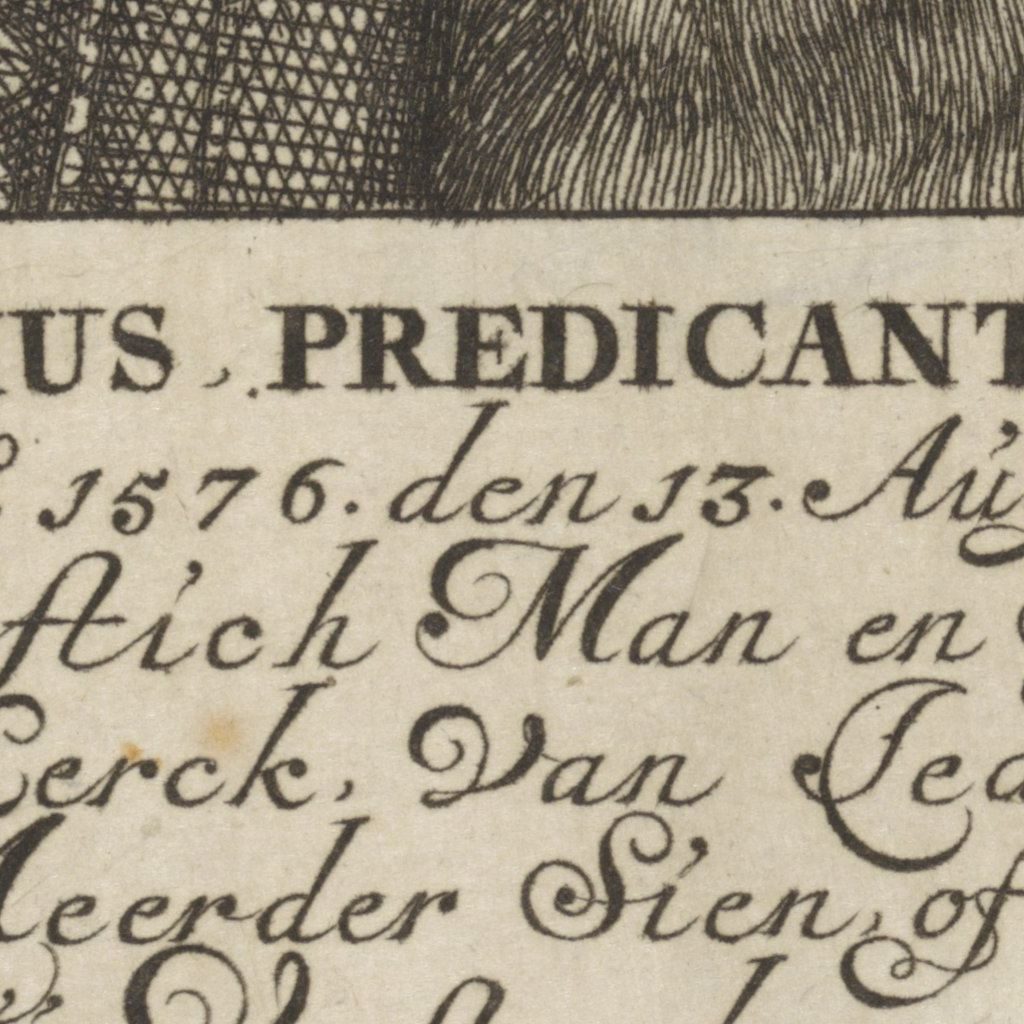 IUS, PREDICANT
1576. den 13. Aug
stich Man en
Kerck, Van Jed
Meerder Sien, of